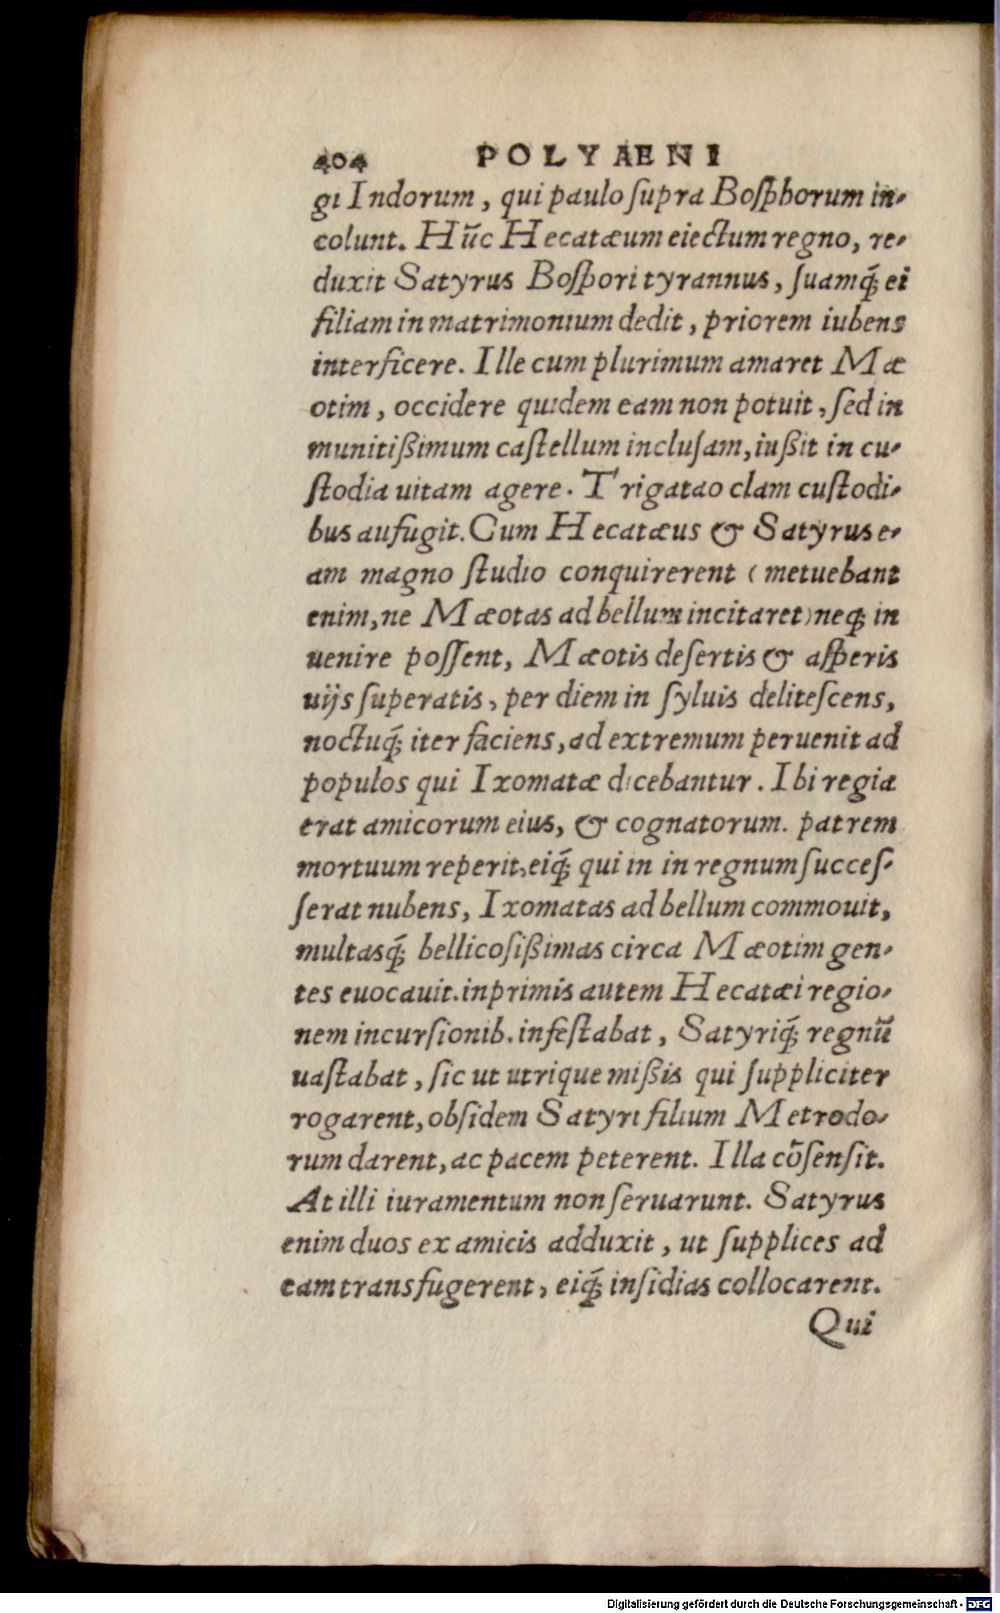 404 POLYAENI
gi Indorum, qui paulo ſupra Boſphorum in-
colunt. Hūc Hecatæum eiectum regno, re-
duxit Satyrus Boſpori tyrannus, ſuamq́; ei
filiam in matrimonium dedit, priorem iubens
interficere. Ille cum plurimum amaret Mæ
otim, occidere quidem eam non potuit, ſed in
munitißimum caſtellum incluſam, iußit in cu-
ſtodia uitam agere. Trigatao clam cuſtodi-
bus aufugit. Cum Hecatæus & Satyrus e-
am magno ſtudio conquirerent (metuebant
enim, ne Mæotas ad bellum incitaret) neq; in
uenire poſſent, Mæotis deſertis & aſperis
uijs ſuperatis, per diem in ſyluis deliteſcens,
noctuq́; iter faciens, ad extremum peruenit ad
populos qui Ixomatæ dicebantur. Ibi regia
erat amicorum eius, & cognatorum. patrem
mortuum reperit, eiq́; qui in in regnum ſucceſ-
ſerat nubens, Ixomatas ad bellum commouit,
multasq́; bellicoſißimas circa Mæotim gen-
tes euocauit. inprimis autem Hecatæi regio-
nem incurſionib. infeſtabat, Satyriq́; regnū
uaſtabat, ſic ut utrique mißis qui ſuppliciter
rogarent, obſidem Satyri filium Metrodo-
rum darent, ac pacem peterent. Illa cōſenſit.
At illi iuramentum non ſeruarunt. Satyrus
enim duos ex amicis adduxit, ut ſupplices ad
eam transfugerent, eiq́; inſidias collocarent.
Qui
Digitalisierung gefördert durch die Deutsche Forschungsgemeinschaft - DFG